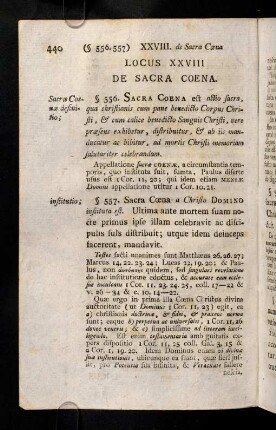 440 (§ 556. 557) XXVIII. de Sacra Cœna
LOCUS XXVIII
DE SACRA COENA.
Sacræ Coe-
næ defini-
tio;
§ 556. SACRA COENA est actio sacra,
qua christianis cum pane benedicto Corpus Chri-
sti, & cum calice benedicto Sanguis Christi, vere
præsens exhibetur, distribuitur, & ab iis man-
ducatur ac bibitur, ad mortis Christi memoriam
salutariter celebrandam.
Appellatione sacræ COENÆ, a circumstantia tem-
poris, quo instituta fuit, sumta, Paulus diserte
usus est 1 Cor. 11, 20; qui idem etiam MENSÆ
Domini appellatione utitur 1 Cor. 10, 21.
institutio;
§ 557. Sacra Cœna a Christo DOMINO
instituta est. Ultima ante mortem suam no-
cte primus ipse illam celebravit ac disci-
pulis suis distribuit; utque idem deinceps
facerent, mandavit.
Testes facti unanimes sunt Matthæus 26, 26. 27;
Marcus 14, 22. 23. 24; Lucas 22, 19. 20; & Pau-
lus, non quidem, sed singulari revelatione
de hac institutione edoctus, & accurate eam noti-
tiæ inculcans 1 Cor. 11, 23. 24. 25, coll. 17—22 &
v. 26—34 & c. 10, 14—22.
Quæ ergo in prima illa Cœna Christus divina
auctoritate (ut Dominus 1 Cor. 11, 23) egit, ea
a) christianis doctrinæ, & fidei, & praxeos norma
sunt; eaque b) perpetua ac universalis, 1 Cor. 11, 26
donec veniet; & c) simplicissime ad literam intelli-
genda. Est enim testamentaria omni
expers dispositio 1 Cor. 11, 25 coll. Gal. 3, 15 &
2 Cor. 1, 19. 22. Idem Dominus etiam
sua, ubicunque ea sunt, quæ seri
puit, pro Potentia sua infinita, & Veracitate fallere
nescia,